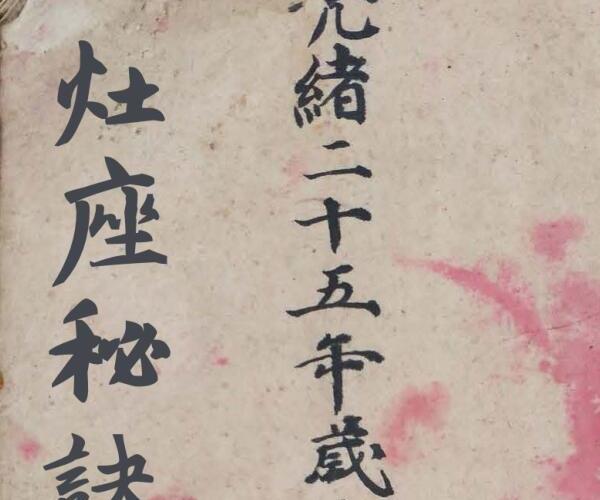 光緒二十五年歲
灶座秘訣